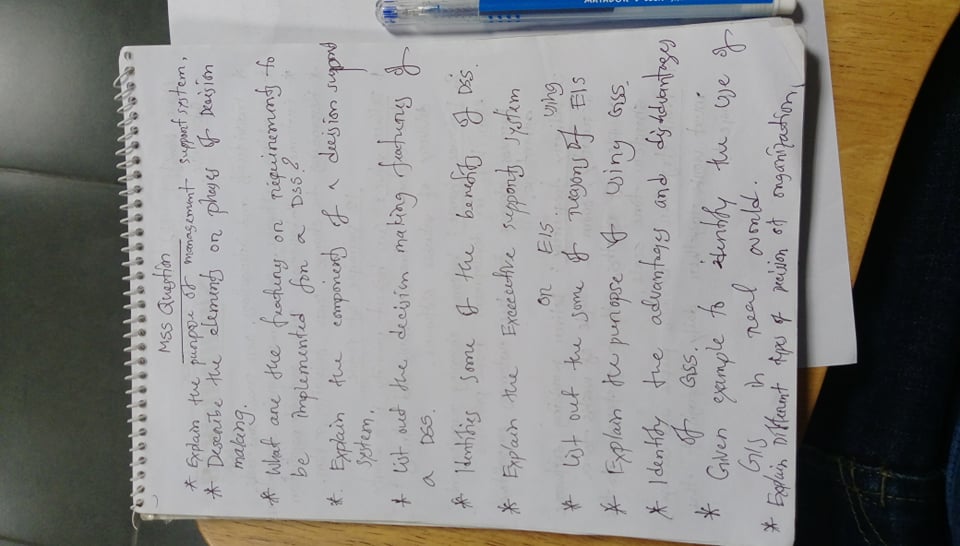 MSS Question
* Explain the purpose of management support system.
* Describe the elements or phases of Decision
making.
* What are the features or requirements to
be implemented for a DSS?
* Explain the components of a decision support
system.
* List out the decision making features of
a DSS.
* Identifies some of the benefits of DSS.
* Explain the Excecutive supports system
or EIS.
using
* List out the some of reasons of EIS
* Explain the puropse of using GSS.
* Identify the advantages and disadvantages
of GSS.
* Given example to identify the use of
GIS in real world.
* Explain Different types of decision of organization.